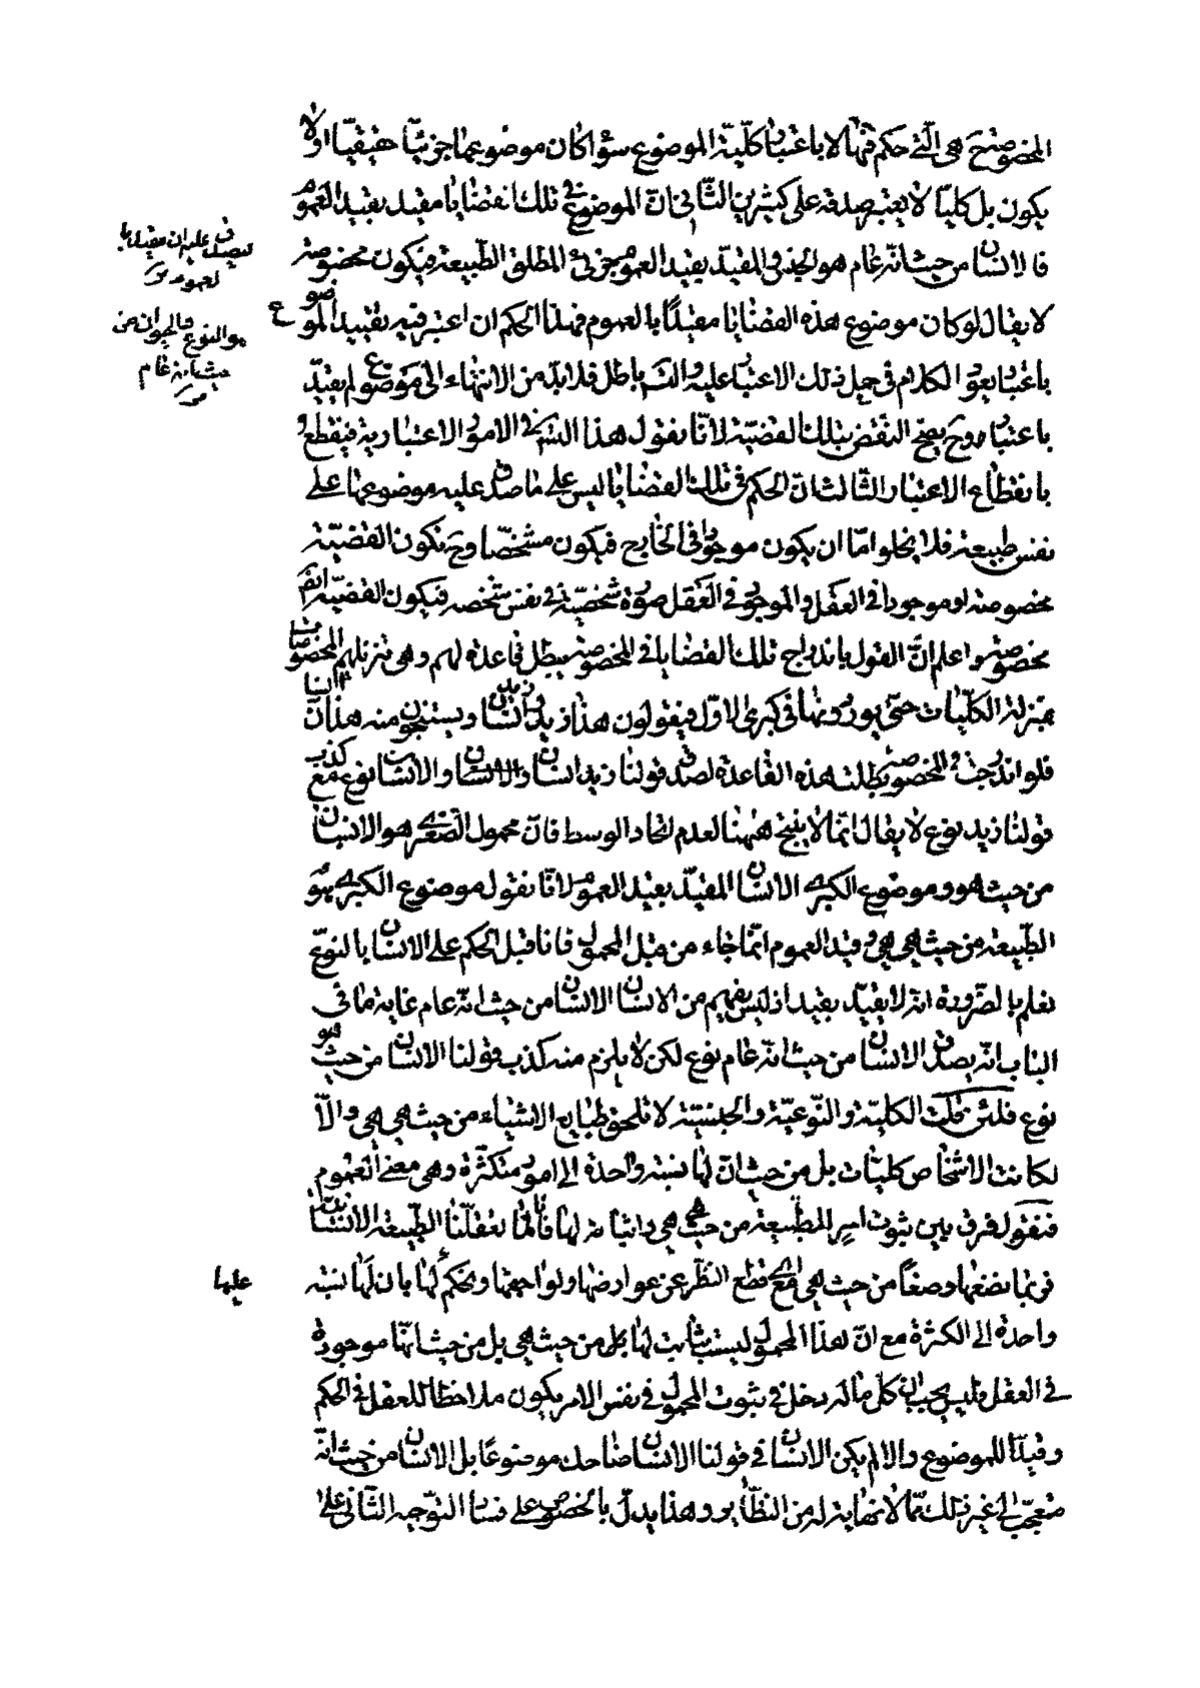 المخصوصة ح هى الّتى حكم فيها لا باعتبار كلّية الموضوع سواء كان موضوعها جزئيّا حقيقيّا او لا
يكون بل كليّا لا يعتبر صدقه على كثيرين الثّانى انّ الموضوع فى تلك القضايا مقيد بقيد العموم
فالانسان من حيث انّه عام هو الجنس والمقيّد بقيد العموم جزئى المطلق الطّبيعة فيكون مخصوصة
لا يقال لو كان موضوع هذه القضايا مقيدًا بالعموم فهذا الحكم ان اعتبر فيه تقييد الموضوع
باعتبار يعود الكلام فى ذلك الاعتبار عليه والتسلسل باطل فلا بدّ من الانتهاء الى موضوع لم يقيّد
باعتبار وح يصحّ النقض بتلك القضيّة لانّا نقول هذا التسلسل فى الامور الاعتبارية فينقطع
بانقطاع الاعتبار الثّالث انّ الحكم فى تلك القضايا ليس على ما صدق عليه موضوعها بل على
نفس طبيعته فلا يخلوا امّا ان يكون موجودا فى الخارج فيكون مشخّصا وح تكون القضيّة
مخصوصة او موجودا فى العقل والموجود فى العقل صورة شخصيّة فى نفس شخصه فتكون القضيّة ايضا
مخصوصة واعلم انّ القول باندراج تلك القضايا فى المخصوصة يبطل قاعدة لهم وهى تنزيلهم المخصوصات
بمنزلة الكلّيات حتى يوردونها فى كبرى الاوّل فيقولون هذا زيد وزيد انسان ويستنتجون منه هذا انسان
فلو اندرجت فى المخصوصة بطلت هذه القاعدة لصدق قولنا زيد انسان والانسان نوع مع كذب
قولنا زيد نوع لا يقال انّما لا ينتج ههنا لعدم اتحاد الوسط فانّ محمول الصّغرى هو الانسان
من حيث هو وموضوع الكبرى الانسان المقيّد بقيد العموم لانّا نقول موضوع الكبرى هو
الطّبيعة من حيث هى هى وقيد العموم انّما جاء من قبل المحمول فانا قبل الحكم على الانسان بالنوع
نعلم بالضّرورة انّه لا يقيّد بقيد اذ ليس يفهم من الانسان الانسان من حيث انّه عام غاية ما فى
الباب انّه يصدق الانسان من حيث انّه عام نوع لكن لا يلزم منه كذب قولنا الانسان من حيث هو
نوع فلئن قلت الكليّة والنّوعيّة والجنسيّة لا تلحق طبايع الاشياء من حيث هى هى والّا
لكانت الاشخاص كليّات بل من حيث انّ لها نسبة واحدة الى امور متكثّرة وهى معنى العموم
فنقول فرق بين ثبوت امر للطبيعة من حيث هى هى واثباته لها فانّا لمّا تعقّلنا الطّبيعة الانسانيّة
فربما نضعها وصفاً من حيث هى هى مع قطع النظّر عن عوارضها ولواحقها ونحكم لها بان لها نسبة
واحدة الى الكثرة مع انّ هذا المحمول ليست بثابت لها من حيث هى بل من حيث انّها موجودة
فى العقل وليس يجب ان كلّ ما له دخل فى ثبوت المحمول فى نفس الامر يكون ملاحظا للعقل فى الحكم
وقيدًا للموضوع والا لم يكن الانسان فى قولنا الانسان ضاحك موضوعًا بل الانسان من حيث انّه
متعجّب الى غير ذلك ممّا لا نهاية له من النظّاير وهذا يدلّ بالخصوص على فساد التوّجيه الثّانى على
عليها
هو النوع والحيوان من
حيث انه عام